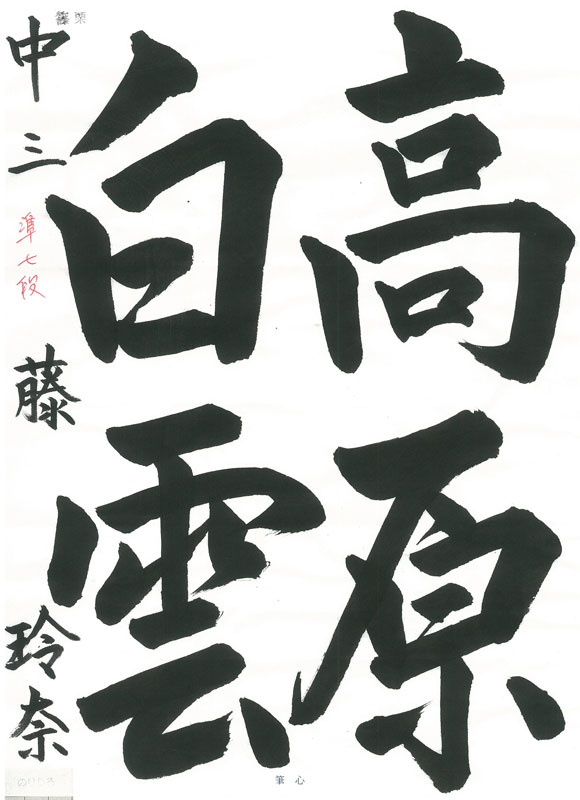 高原
白雲
中三
準七段
藤
玲奈
篠栗
筆心